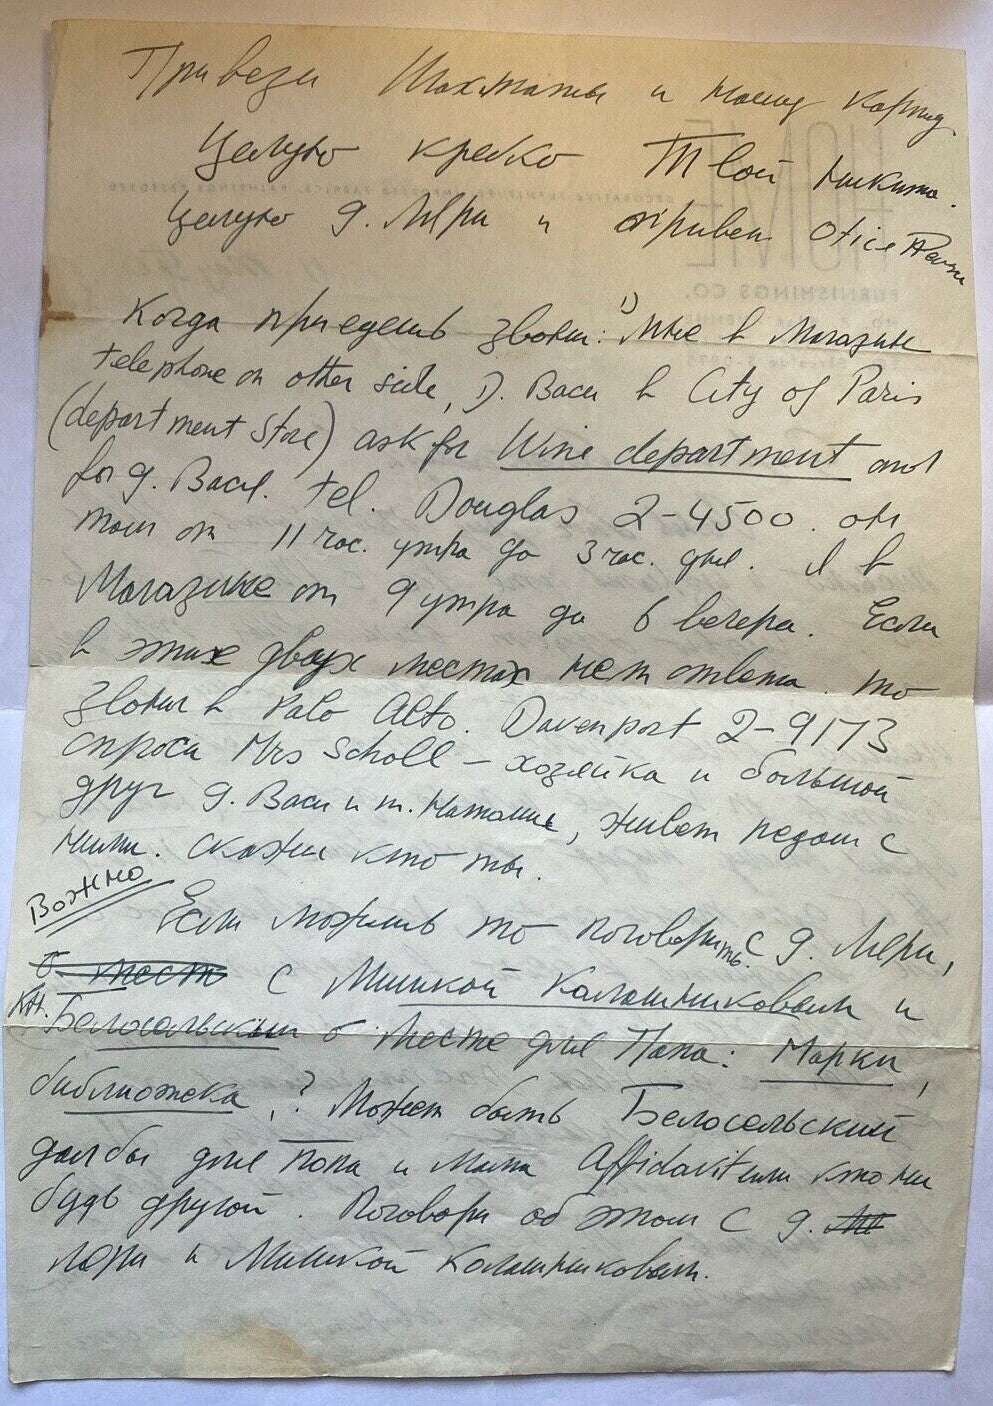 Привези Шахматы и нашу
Целую крепко Твой Никита.
Целую д. Мэри и привет
Когда приедешь звони: 1) Мне в Магазин
telephone on other side, 2). д. Васи в City of Paris
(department Store) ask for Wine department and
for д. Вася. tel. Douglas 2-4500. он
там от 11 час. утра до 3 час. дня. Я в
Магазине от 9 утра до 6 вечера. Если
в этих двух местах нет ответа. то
звони в Palo Alto. Davenport 2-9173
спроси Mrs Scholl – хозяйка и большой
друг д. Васи и т. Наташи, живет рядом с
ними. скажи кто ты.
Важно
Если можешь то поговорить с д. Мэри,
о мест с Мишкой Калашниковым и
кн. Белосельским о месте для Папа: Марки,
библиотека, ? Может быть Белосельский
дал бы для Папа и Мама Affidavit или кто ни
будь другой. Поговори об этом с д.
Мэри и Мишкой Калашниковым.
HOME
FURNISHINGS CO.